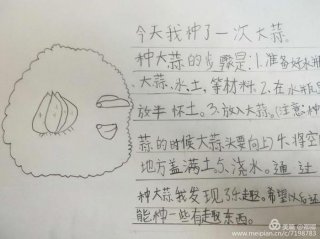 今天我种了一次大蒜。
种大蒜的步骤是：1.准备好水瓶
大蒜、水土，等材料。2.在水瓶里
放半杯土。3.放入大蒜。（注意：种
蒜的时候大蒜头要向上）4.将空
地方盖满土5.浇水。通过
种大蒜我发现了乐趣。希望以后还
能种一些有趣东西。
美篇 @都都
www.meipian.cn/c/7198783